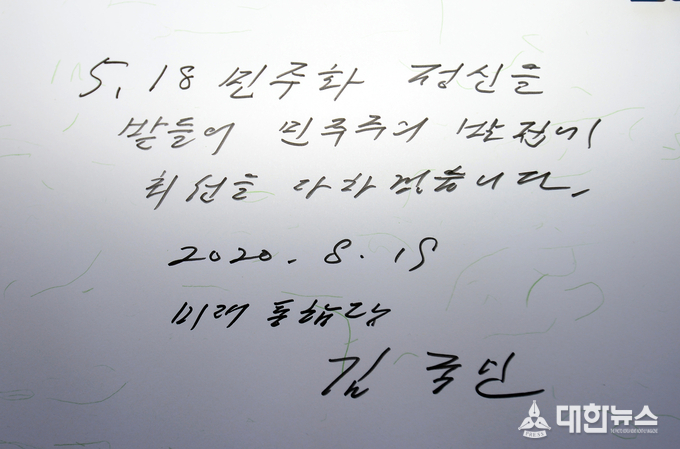 5, 18 민주화 정신을
받들어 민주주의 발전에
최선을 다하겠습니다.
2020. 8. 19
미래 통합당
김 종인
대한뉴스